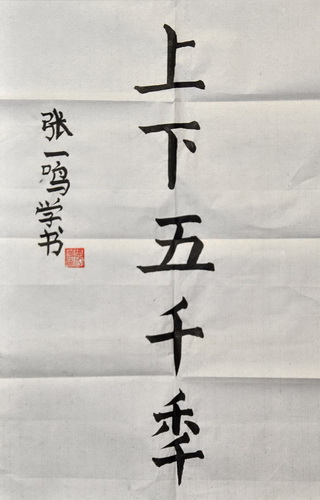 上下五千秊
张一鸣学书